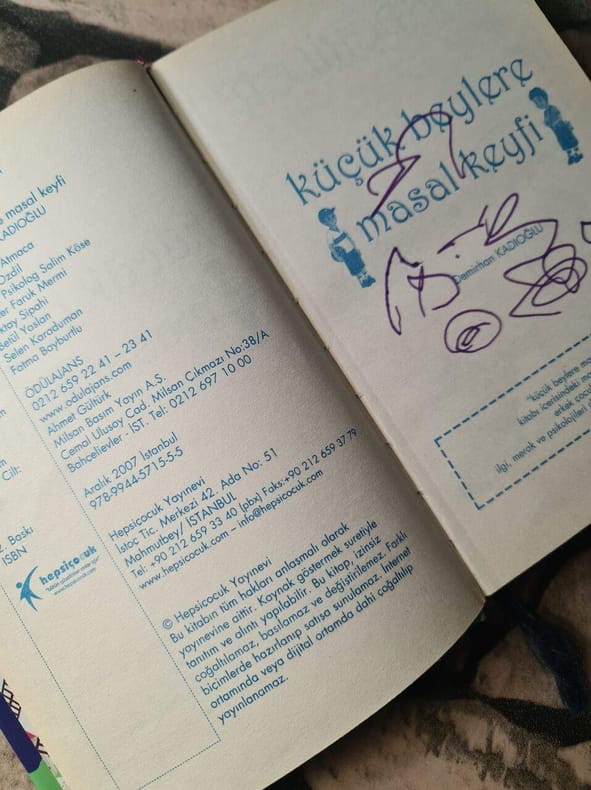 e masal keyfi
KADIOĞLU
Atmaca
Özdil
Psikolog Salim Köse
er Faruk Mermi
ktay Sipahi
Betül Yaslan
Selen Karaduman
Fatma Bayburtlu
ÖDÜLAJANS
0212 659 22 41 – 23 41
www.odulajans.com
Ahmet Gültürk
Milsan Basım Yayın A.S.
Cemal Ulusoy Cad. Milsan Çıkmazı No:38/A
Bahçelievler - İST. Tel: 0212 697 10 00
Cilt:
2. Baskı
Aralık 2007 İstanbul
ISBN
978-9944-5715-5-5
Hepsicocuk Yayınevi
İstoc Tic. Merkezi 42. Ada No: 51
Mahmutbey/ İSTANBUL
Tel: +90 212 659 33 40 (pbx) Faks:+90 212 659 37 79
www.hepsicocuk.com – info@hepsicocuk.com
hepsiçocuk
www.hepsicocuk.com
© Hepsicocuk Yayınevi
Bu kitabın tüm hakları anlaşmalı olarak
yayınevine aittir. Kaynak göstermek suretiyle
tanıtım ve alıntı yapılabilir. Bu kitap, izinsiz
çoğaltılamaz, basılamaz ve değiştirilemez. Farklı
biçimlerde hazırlanıp satışa sunulamaz. İnternet
ortamında veya dijital ortamda dahi çoğaltılıp
yayınlanamaz.
küçük beylere
masal keyfi
Demirhan KADIOĞLU
"küçük beylere ma
kitabı içerisindeki ma
erkek çocu
ilgi, merak ve psikolojileri d